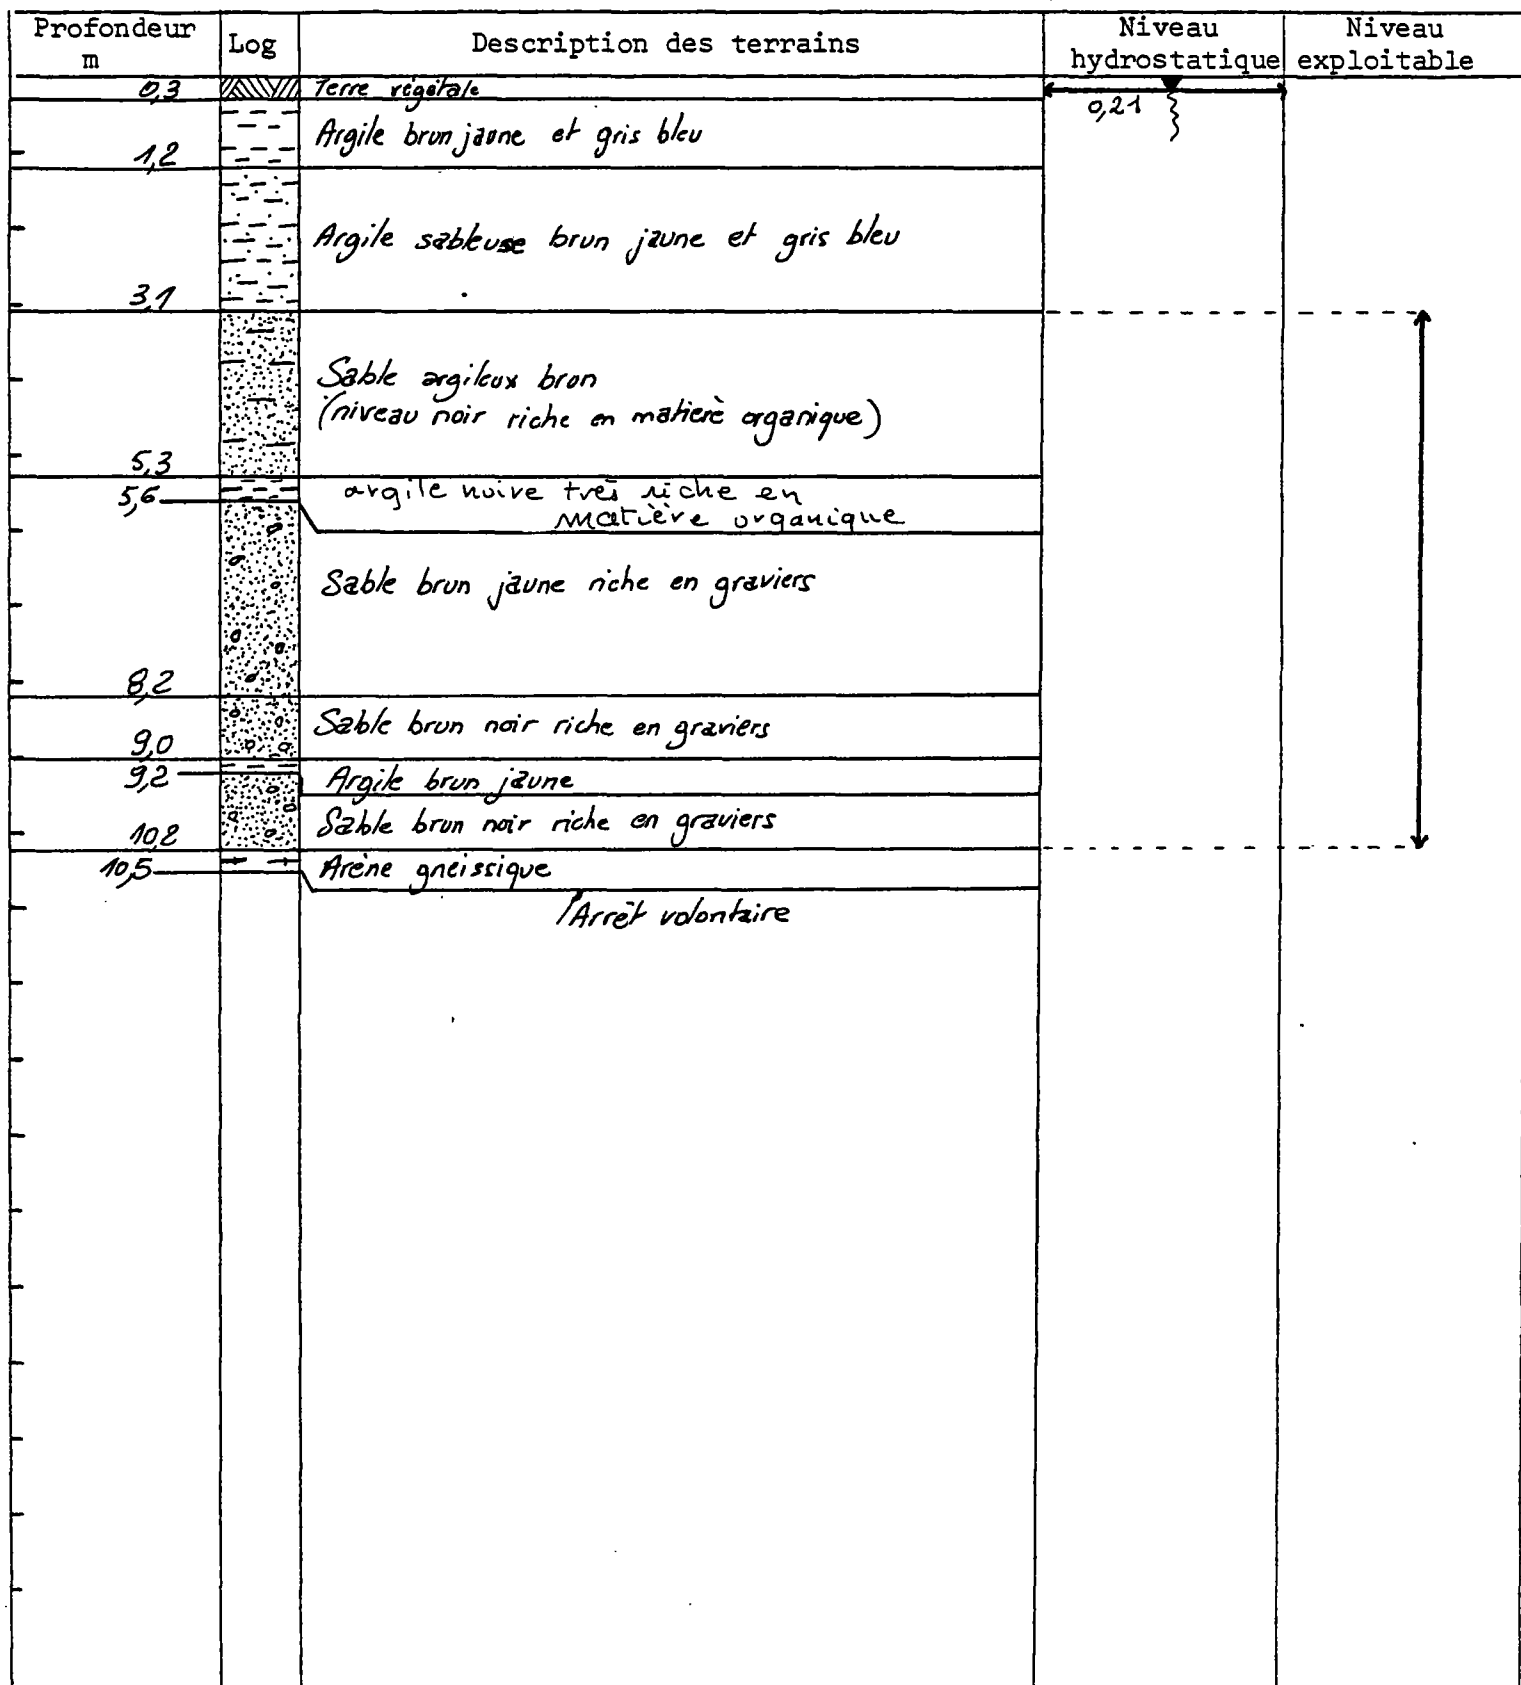 Profondeur
m
Log
Description des terrains
Niveau
hydrostatique
Niveau
exploitable
0,3
Terre végétale
0,21
Argile brun jaune et gris bleu
1,2
Argile sableuse brun jaune et gris bleu
3,1
Sable argileux brun
(niveau noir riche en matière organique)
5,3
argile noire très riche en
matière organique
5,6
Sable brun jaune riche en graviers
8,2
Sable brun noir riche en graviers
9,0
9,2
Argile brun jaune
Sable brun noir riche en graviers
10,2
10,5
Arène gneissique
Arrêt volontaire